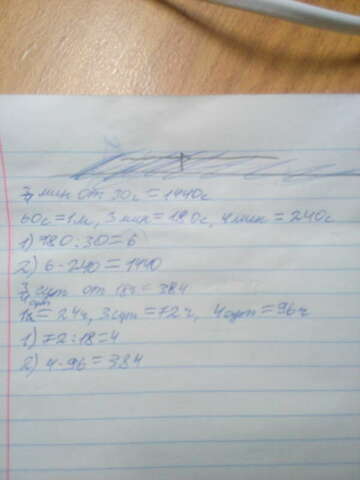 3/4 мин от 30с = 1440с
60с = 1м, 3 мин = 180с, 4 мин = 240с
1) 180 : 30 = 6
2) 6 · 240 = 1440
3/4 сут от 18ч = 384
1 сут = 24ч, 3 сут = 72ч, 4 сут = 96ч
1) 72 : 18 = 4
2) 4 · 96 = 384